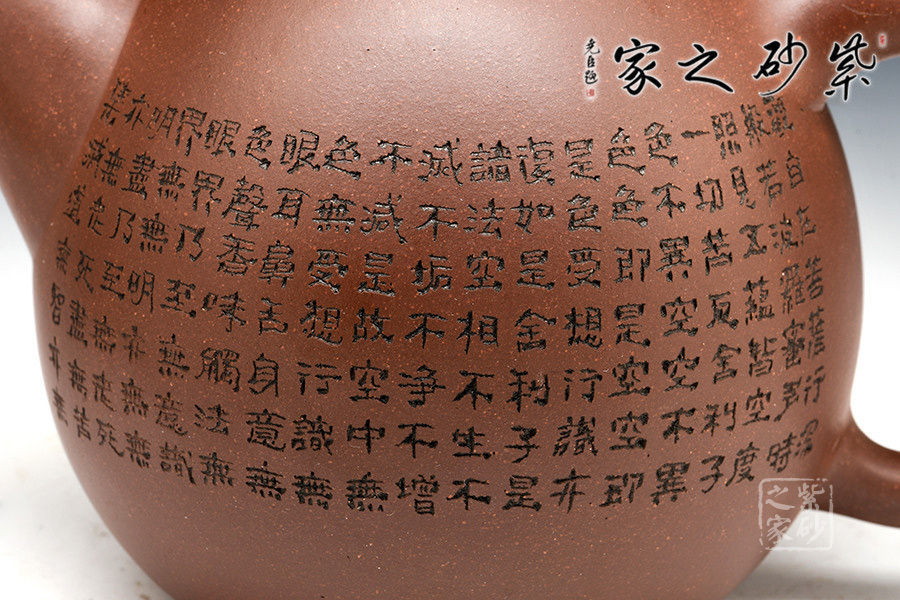 紫砂之家
堯臣題
觀自在菩薩行深
般若波羅蜜多時
照見五蘊皆空度
一切苦厄舍利子
色不異空空不異
色色即是空空即
是色受想行識亦
復如是舍利子是
諸法空相不生不
滅不垢不争不增
不減是故空中無
色無受想行識無
眼耳鼻舌身意無
色聲香味觸法無
眼界乃至無意識
界無無明亦無無
明盡乃至無老死
亦無老死盡無苦
集滅道無智亦無
紫砂之家